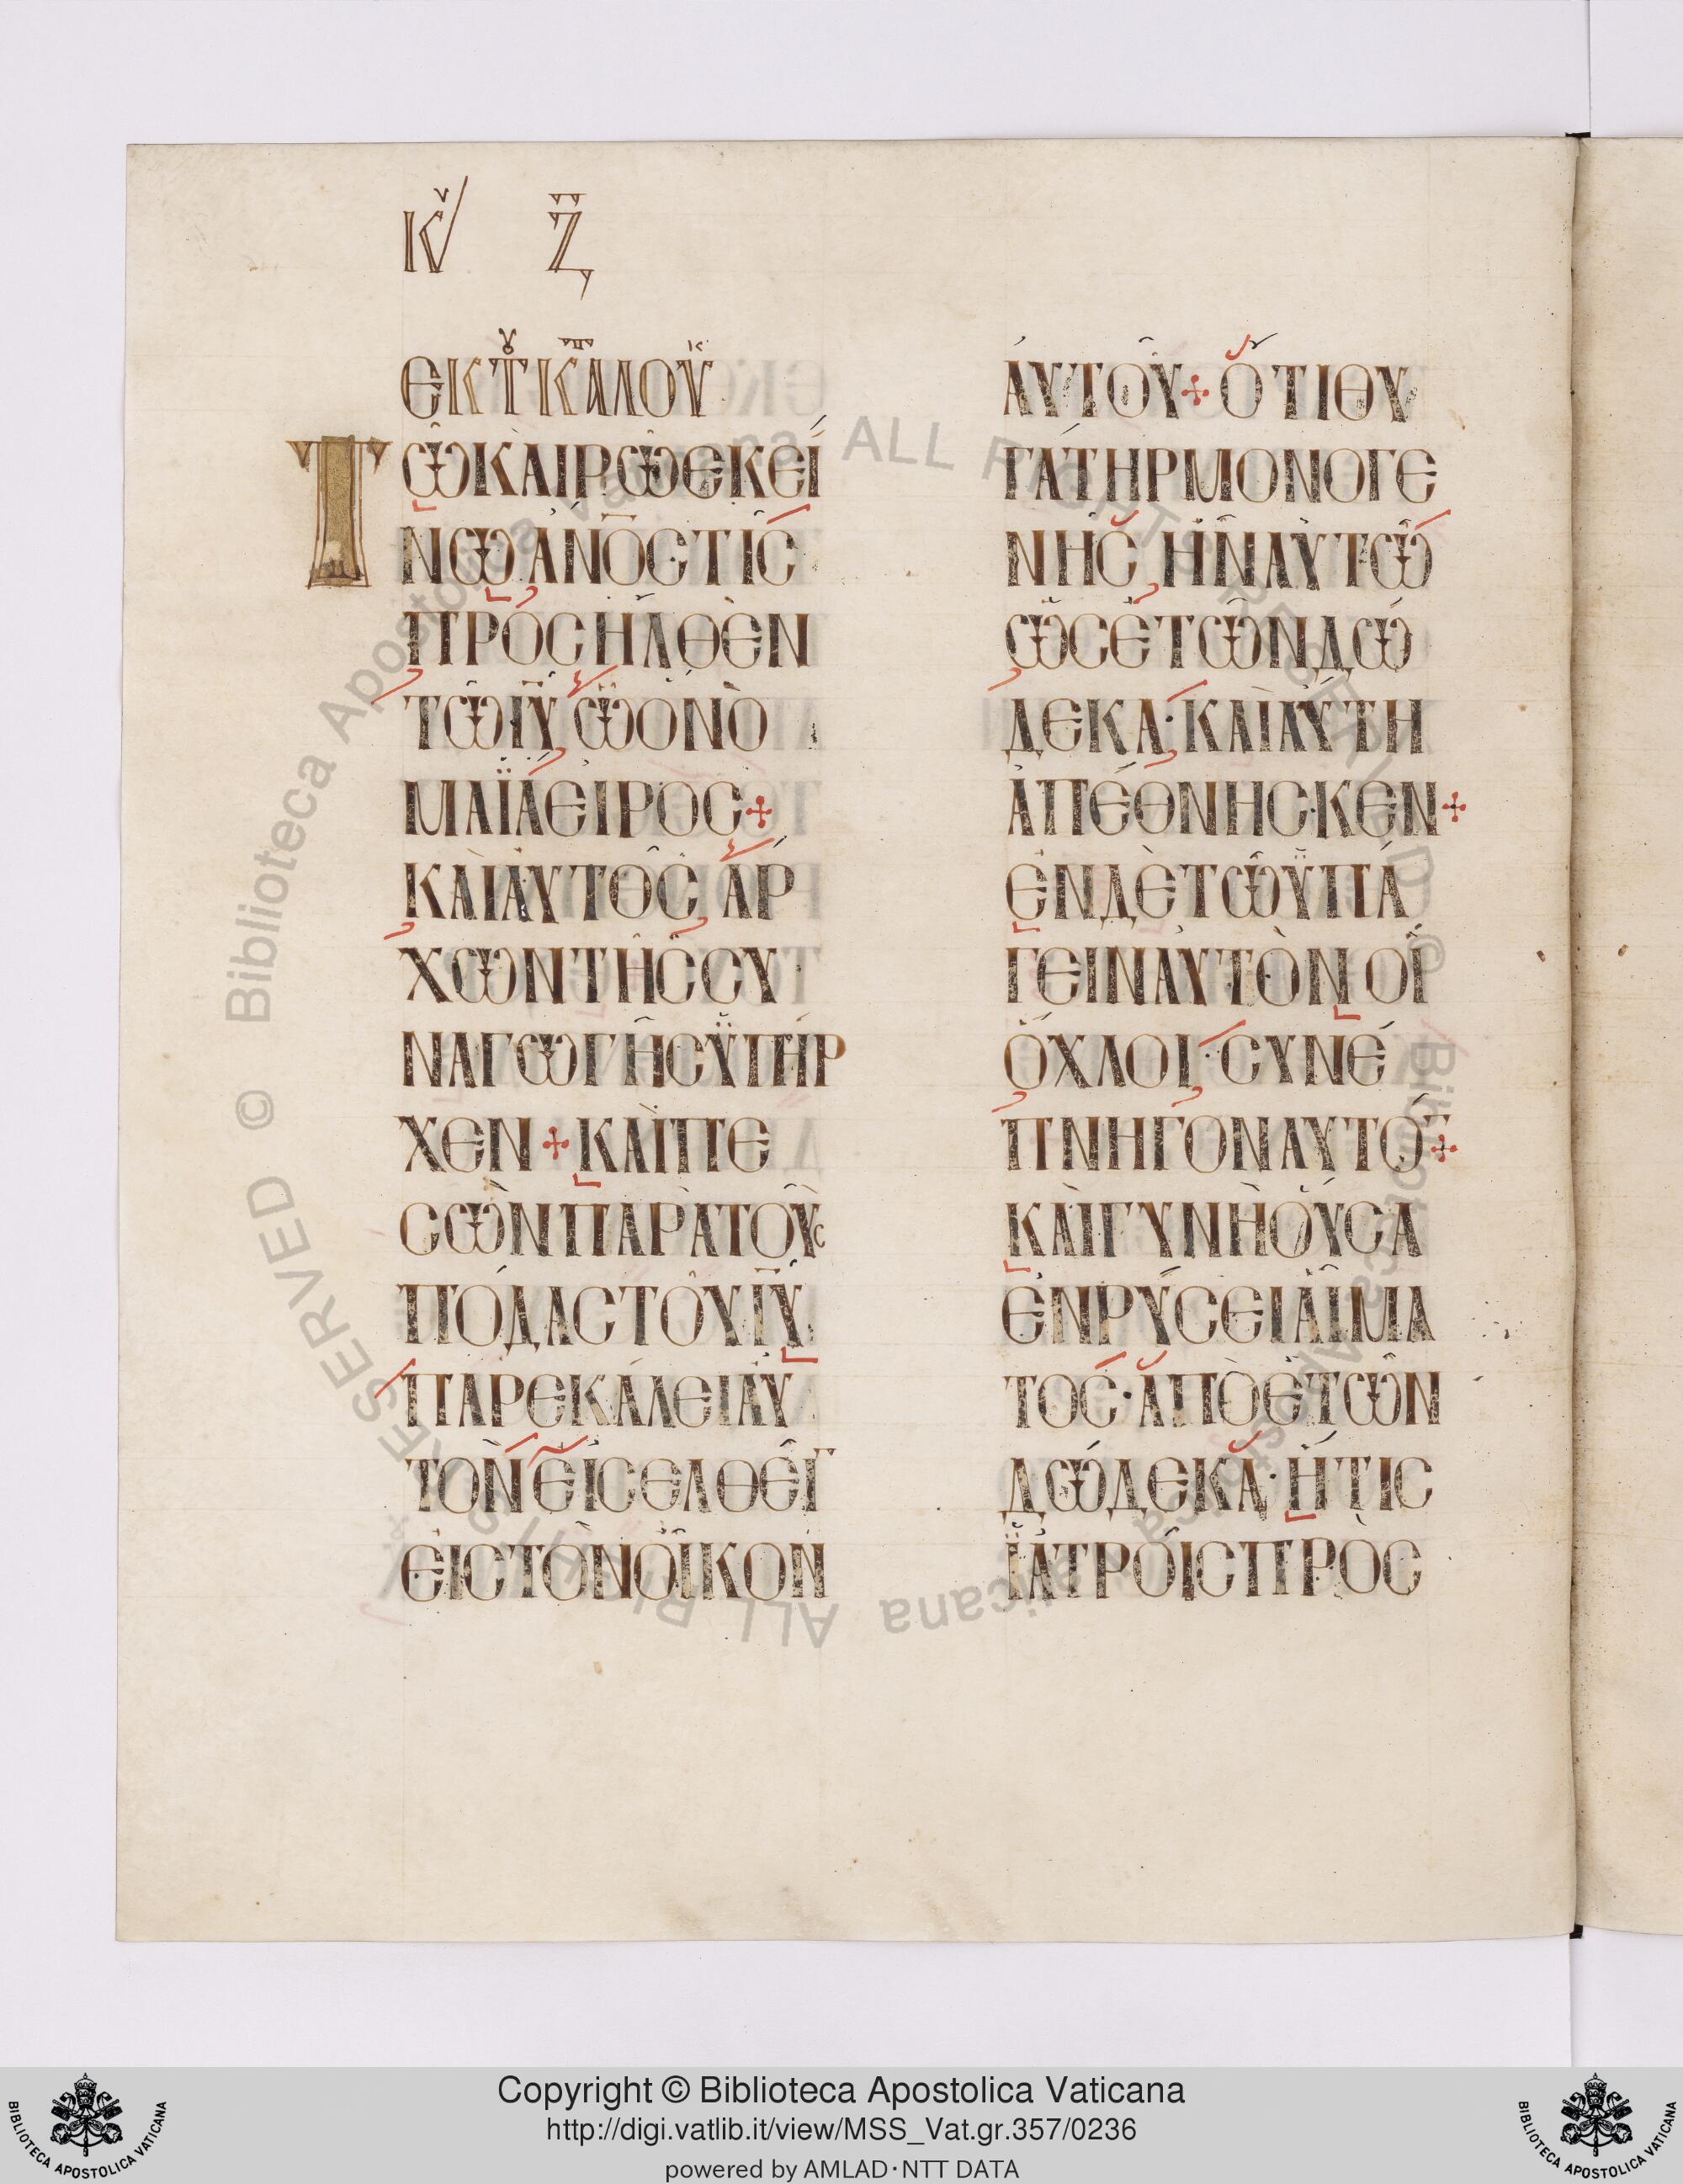 Κυ Ζ
ΕΚ Τ ΚΑ ΛΟΥΚ
ΤῼΚΑΙΡῼΕΚΕΙ
ΝωΑΝΟΣΤΙΣ
ΠΡΟΣΗΛΘΕΝ
ΤωΙΥ ωΟΝΟ
ΜΑΪΑΕΙΡΟΣ+
ΚΑΙΑΥΤΟΣ ΑΡ
ΧωΝΤΗΣΣΥ
ΝΑΓωΓΗΣΫΠΗΡ
ΧΕΝ+ΚΑΙΠΕ
ΣωΝΠΑΡΑΤΟΥΣ
ΠΟΔΑΣΤΟΥΙΥ
ΠΑΡΕΚΑΛΕΙΑΥ
ΤΟΝΕΙΣΕΛΘΕΙ
ΕΙΣΤΟΝΟΙΚΟΝ
ΑΥΤΟΥ+ΟΤΙΘΥ
ΓΑΤΗΡΜΟΝΟΓΕ
ΝΗΣ ΗΝΑΥΤω
ωΣΕΤωΝΔω
ΔΕΚΑ·ΚΑΙΑΥΤΗ
ΑΠΕΘΝΗΣΚΕΝ+
ΕΝΔΕΤωΫΠΑ
ΓΕΙΝΑΥΤΟΝ ΟΙ
ΟΧΛΟΙ·ΣΥΝΕ
ΠΝΗΓΟΝΑΥΤΟ+
ΚΑΙΓΥΝΗΟΥΣΑ
ΕΝΡΥΣΕΙΑΙΜΑ
ΤΟΣ·ΑΠΟΕΤωΝ
ΔωΔΕΚΑ·ΗΤΙΣ
ΪΑΤΡΟΙΣΠΡΟΣ
© Biblioteca Apostolica Vaticana ALL RIGHTS RESERVED
Copyright © Biblioteca Apostolica Vaticana
http://digi.vatlib.it/view/MSS_Vat.gr.357/0236
powered by AMLAD·NTT DATA
BIBLIOTECA APOSTOLICA VATICANA
BIBLIOTECA APOSTOLICA VATICANA